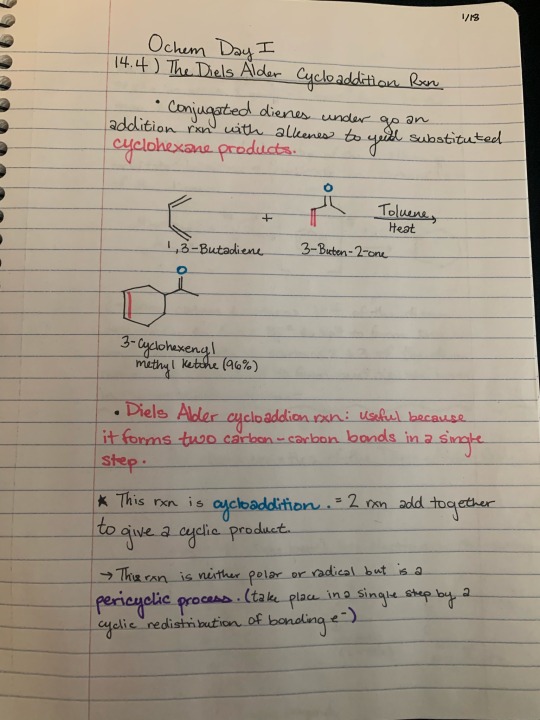 1/18
Ochem Day I
14.4) The Diels Alder Cycloaddition Rxn
• Conjugated dienes under go an
addition rxn with alkenes to yeild substituted
cyclohexane products.
O
+
Toluene,
Heat
1,3-Butadiene 3-Buten-2-one
O
3-Cyclohexenyl
methyl Ketone (96%)
• Diels Alder cycloaddion rxn: useful because
it forms two carbon-carbon bonds in a single
step.
* This rxn is cycloaddition. = 2 rxn add together
to give a cyclic product.
→ This rxn is neither polar or radical but is a
pericyclic process. (take place in a single step by a
cyclic redistribution of bonding e⁻)